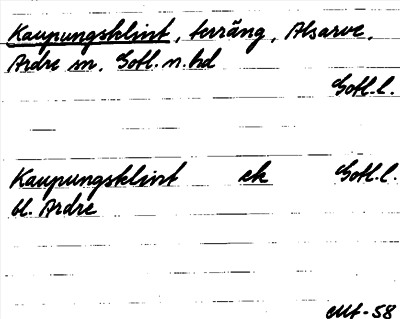 Kaupungsklint, terräng, Alsarve,
Ardre sn, Gotl. n. hd
Gotl. l.
Kaupungsklint ek Gotl. l.
bl. Ardre
Mf-58